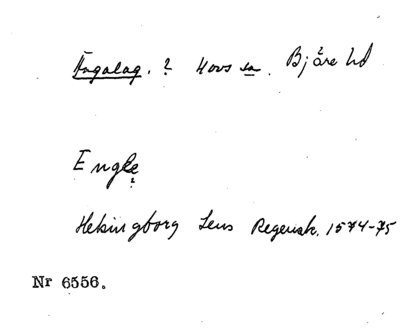 Fagalag. ? Hovs sn. Bjäre hd
Engle
?
Helsingborg Lens Regensk. 1574-75
Nr 6556.